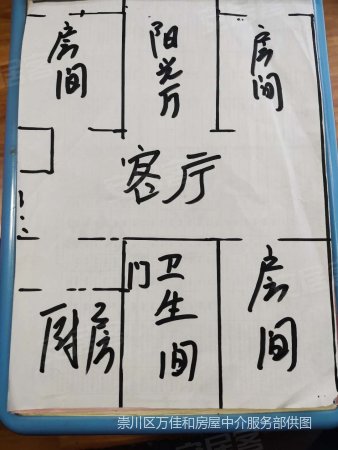 房间
阳光厅
房间
客厅
厨房
门
卫生间
房间
崇川区万佳和房屋中介服务部供图